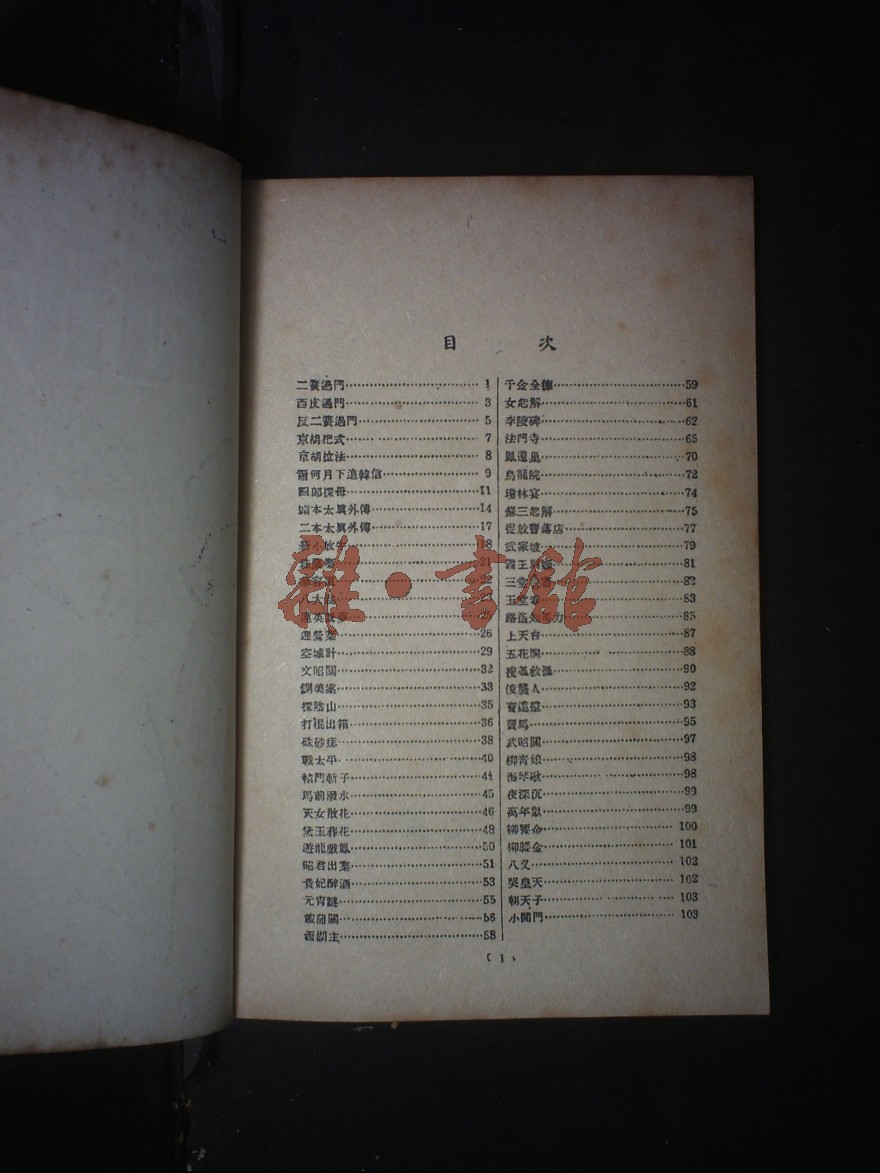 目 次
二簧過門 1
西皮過門 3
反二簧過門 5
京胡把式 7
京胡拉法 8
蕭何月下追韓信 9
四郎探母 11
頭本太眞外傳 14
二本太眞外傳 17
新小放牛 18
21
22
八大
26
空城計 29
文昭關 32
鍘美案 33
探陰山 35
打棍出箱 36
硃砂痣 38
戰太平 40
轅門斬子 44
馬前潑水 45
天女散花 46
黛玉葬花 48
遊龍戲鳳 50
昭君出塞 51
貴妃醉酒 53
元宵謎 55
56
西湖主 58
千金全德 59
女起解 61
李陵碑 62
法門寺 65
鳳還巢 70
烏龍院 72
瓊林宴 74
蘇三起解 75
捉放曹落店 77
武家坡 79
霸王別姬 81
三堂會審 82
玉堂春 83
路遙知馬力 85
上天台 87
五花洞 88
搜孤救孤 90
俊襲人 92
93
賣馬 95
武昭關 97
柳靑娘 98
海琴歌 98
夜深沉 99
萬年歡 99
柳 100
柳 金 101
八叉 102
哭皇天 102
朝天子 103
小開門 103
( 1 )
雜·書館